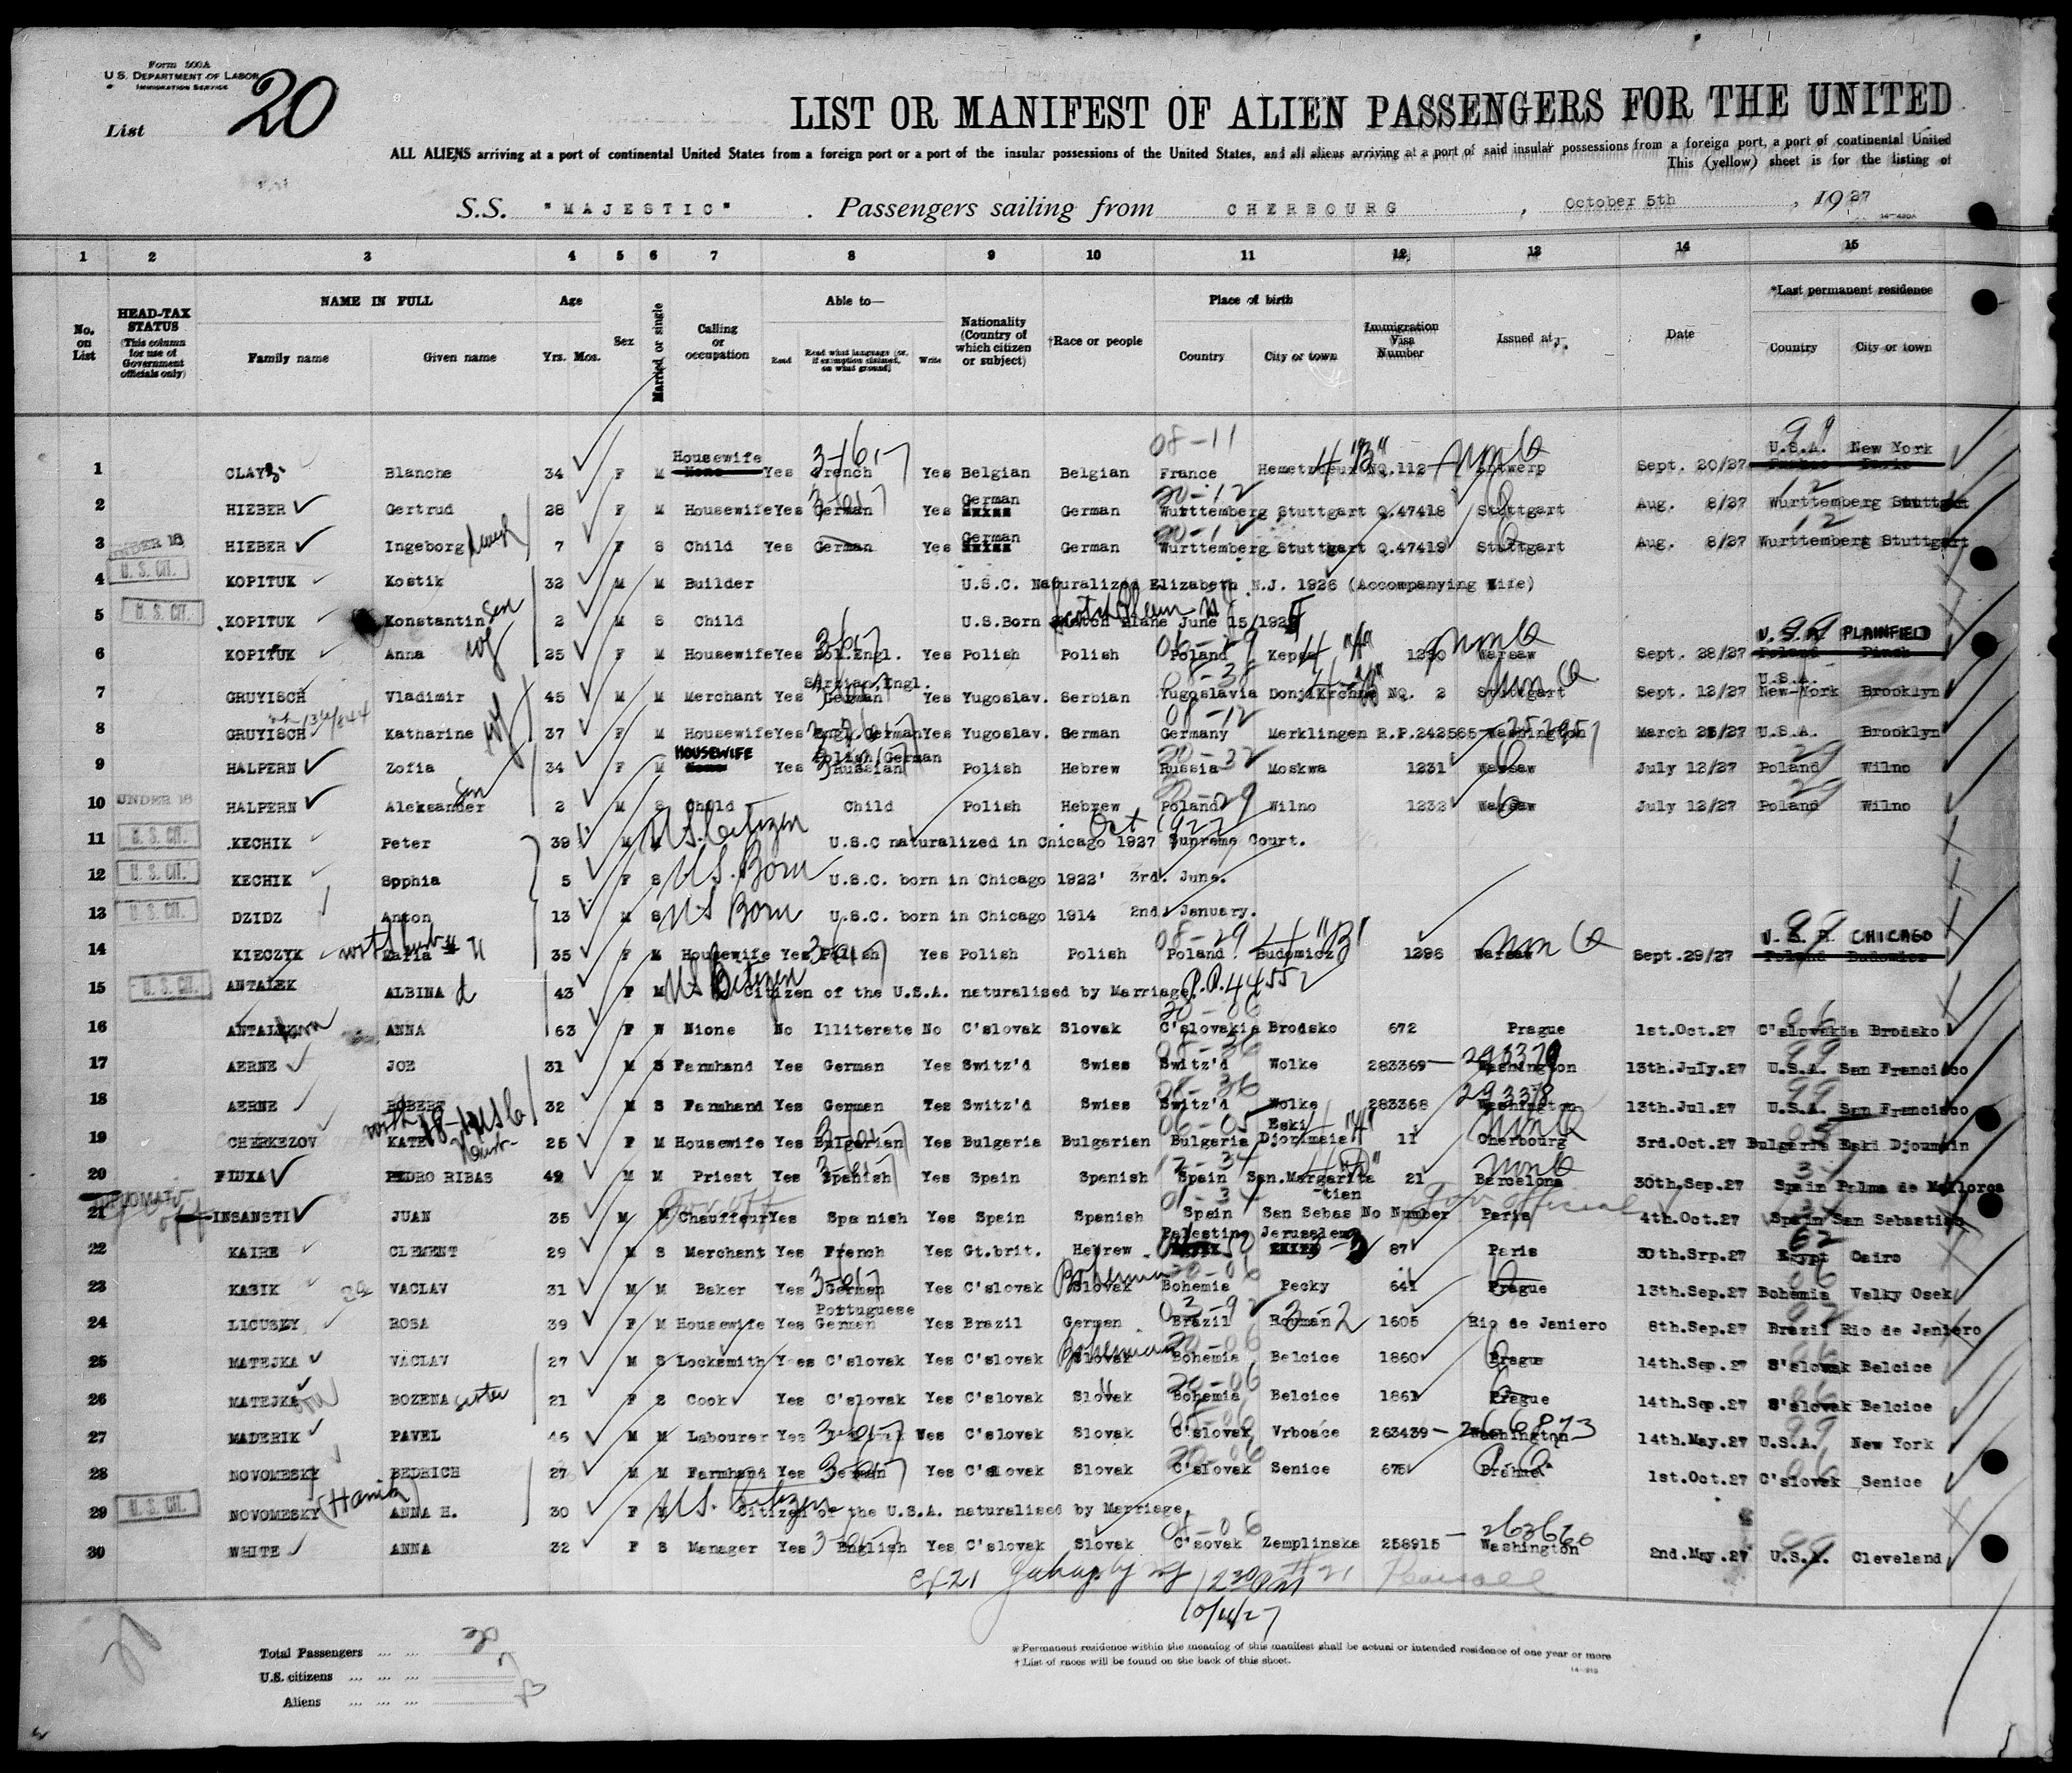 Form 500A
U. S. DEPARTMENT OF LABOR
IMMIGRATION SERVICE
List 20
LIST OR MANIFEST OF ALIEN PASSENGERS FOR THE UNITED
ALL ALIENS arriving at a port of continental United States from a foreign port or a port of the insular possessions of the United States, and all aliens arriving at a port of said insular possessions from a foreign port, a port of continental United
This (yellow) sheet is for the listing of
S.S. "MAJESTIC" . Passengers sailing from CHERBOURG , October 5th , 1927
1 2 3 4 5 6 7 8 9 10 11 12 13 14 15
No. on List
HEAD-TAX STATUS (This column for use of Government officials only)
NAME IN FULL Family name Given name
Age Yrs. Mos.
Sex
Married or single
Calling or occupation
Able to— Read Read what language (or, if exemption claimed, on what ground) Write
Nationality (Country of which citizen or subject)
†Race or people
Place of birth Country City or town
Immigration Visa Number
Issued at—
Date
*Last permanent residence Country City or town
1 CLAYS Blanche 34 F M Housewife Yes French Yes Belgian Belgian France NQ.112 Antwerp Sept. 20/27 U.S.A. New York
2 HIEBER Gertrud 28 F M Housewife Yes German Yes German German Wurttemberg Stuttgart Q.47418 Stuttgart Aug. 8/27 Wurttemberg Stuttgart
3 UNDER 16 HIEBER Ingeborg 7 F S Child Yes German Yes German German Wurttemberg Stuttgart Q.47419 Stuttgart Aug. 8/27 Wurttemberg Stuttgart
4 U. S. CIT. KOPITUK Kostik 32 M M Builder U.S.C. Naturalized Elizabeth N.J. 1926 (Accompanying Wife)
5 U. S. CIT. KOPITUK Konstantin Son 2 M S Child U.S.Born Scotch Plane June 15/192
6 KOPITUK Anna wf 25 F M Housewife Yes Pol.Engl. Yes Polish Polish Poland 1230 Warsaw Sept. 28/27 U.S.A. PLAINFIELD
7 GRUYISCH Vladimir 45 M M Merchant Yes Serbian,Engl. German Yes Yugoslav. Serbian Yugoslavia NQ. 2 Stuttgart Sept. 12/27 U.S.A. New-York Brooklyn
8 GRUYISCH Katharine wf 37 F M Housewife Yes Engl.German Yes Yugoslav. German Germany Merklingen R.P.242565 Washington March 25/27 U.S.A. Brooklyn
9 HALPERN Zofia 34 F M HOUSEWIFE Yes Polish/German Russian Polish Hebrew Russia Moskwa 1231 Warsaw July 12/27 Poland Wilno
10 UNDER 16 HALPERN Aleksander Son 2 M S Child Child Polish Hebrew Poland Wilno 1232 Warsaw July 12/27 Poland Wilno
11 U. S. CIT. KECHIK Peter 39 M M U.S. Citizen U.S.C naturalized in Chicago 1927 Supreme Court. Oct 1927
12 U. S. CIT. KECHIK Spphia 5 F S U.S. Born U.S.C. born in Chicago 1922' 3rd. June.
13 U. S. CIT. DZIDZ Anton 13 M S U.S Born U.S.C. born in Chicago 1914 2nd January.
14 KIECZYK Maria 35 F M Housewife Yes Polish Yes Polish Polish Poland Budomicz 1296 Warsaw Sept.29/27 U.S.A. CHICAGO
15 U. S. CIT. ANTALEK ALBINA 43 F M U.S Citizen Citizen of the U.S.A. naturalised by Marriage. P.P.44552
16 ANTALEK ANNA 63 F W Nione No Illiterate No C'slovak Slovak C'slovakia Brodsko 672 Prague 1st.Oct.27 C'slovakia Brodsko
17 AERNE JOE 31 M S Farmhand Yes German Yes Switz'd Swiss Switz'd Wolke 283369 Washington 13th.July.27 U.S.A. San Francisco
18 AERNE ROBERT 32 M S Farmhand Yes German Yes Switz'd Swiss Switz'd Wolke 283368 293378 Washington 13th.Jul.27 U.S.A. San Francisco
19 CHERKEZOV KATE 25 F M Housewife Yes Bulgarian Yes Bulgaria Bulgarian Bulgaria Eski Djoumaia 11 Cherbourg 3rd.Oct.27 Bulgaria Eski Djoumain
20 FLUXA PEDRO RIBAS 49 M M Priest Yes Spanish Yes Spain Spanish Spain San.Margarita 21 Barcelona 30th.Sep.27 Spain Palma de Mallorca
21 INSANSTI JUAN 35 M M Chauffeur Yes Spanish Yes Spain Spanish Spain San Sebas -tian No Number Paris 4th.Oct.27 Spain San Sebastian
22 KAIRE CLEMENT 29 M S Merchant Yes French Yes Gt.brit. Hebrew Palestine Jerusalem 87 Paris 30th.Srp.27 Egypt Cairo
23 KASIK VACLAV 31 M M Baker Yes German Yes C'slovak Slovak Bohemian Bohemia Pecky 641 Prague 13th.Sep.27 Bohemia Velky Osek
24 LICUSKY ROSA 39 F M Housewife Yes Portuguese German Yes Brazil German Brazil 1605 Rio de Janiero 8th.Sep.27 Brazil Rio de Janiero
25 MATEJKA VACLAV 27 M S Locksmith Yes C'slovak Yes C'slovak Slovak Bohemian Bohemia Belcice 1860 Prague 14th.Sep.27 S'slovak Belcice
26 MATEJKA BOZENA sister 21 F S Cook Yes C'slovak Yes C'slovak Slovak Bohemia Belcice 1861 Prague 14th.Sep.27 S'slovak Belcice
27 MADERIK PAVEL 46 M M Labourer Yes Yes C'slovak Slovak C'slovak Vrboace 263439 266873 Washington 14th.May.27 U.S.A. New York
28 NOVOMESKY BEDRICH 27 M M Farmhand Yes German Yes C'slovak Slovak C'slovak Senice 675 1st.Oct.27 C'slovak Senice
29 U. S. CIT. NOVOMESKY ANNA H. 30 F M U.S. Citizen Citizen of the U.S.A. naturalised by Marriage.
30 WHITE ANNA 32 F S Manager Yes English Yes C'slovak Slovak C'sovak Zemplinska 258915 Washington 2nd.May.27 U.S.A. Cleveland
10/11/27
Total Passengers 30
U.S. citizens 7
Aliens 23
*Permanent residence within the meaning of this manifest shall be actual or intended residence of one year or more
†List of races will be found on the back of this sheet.